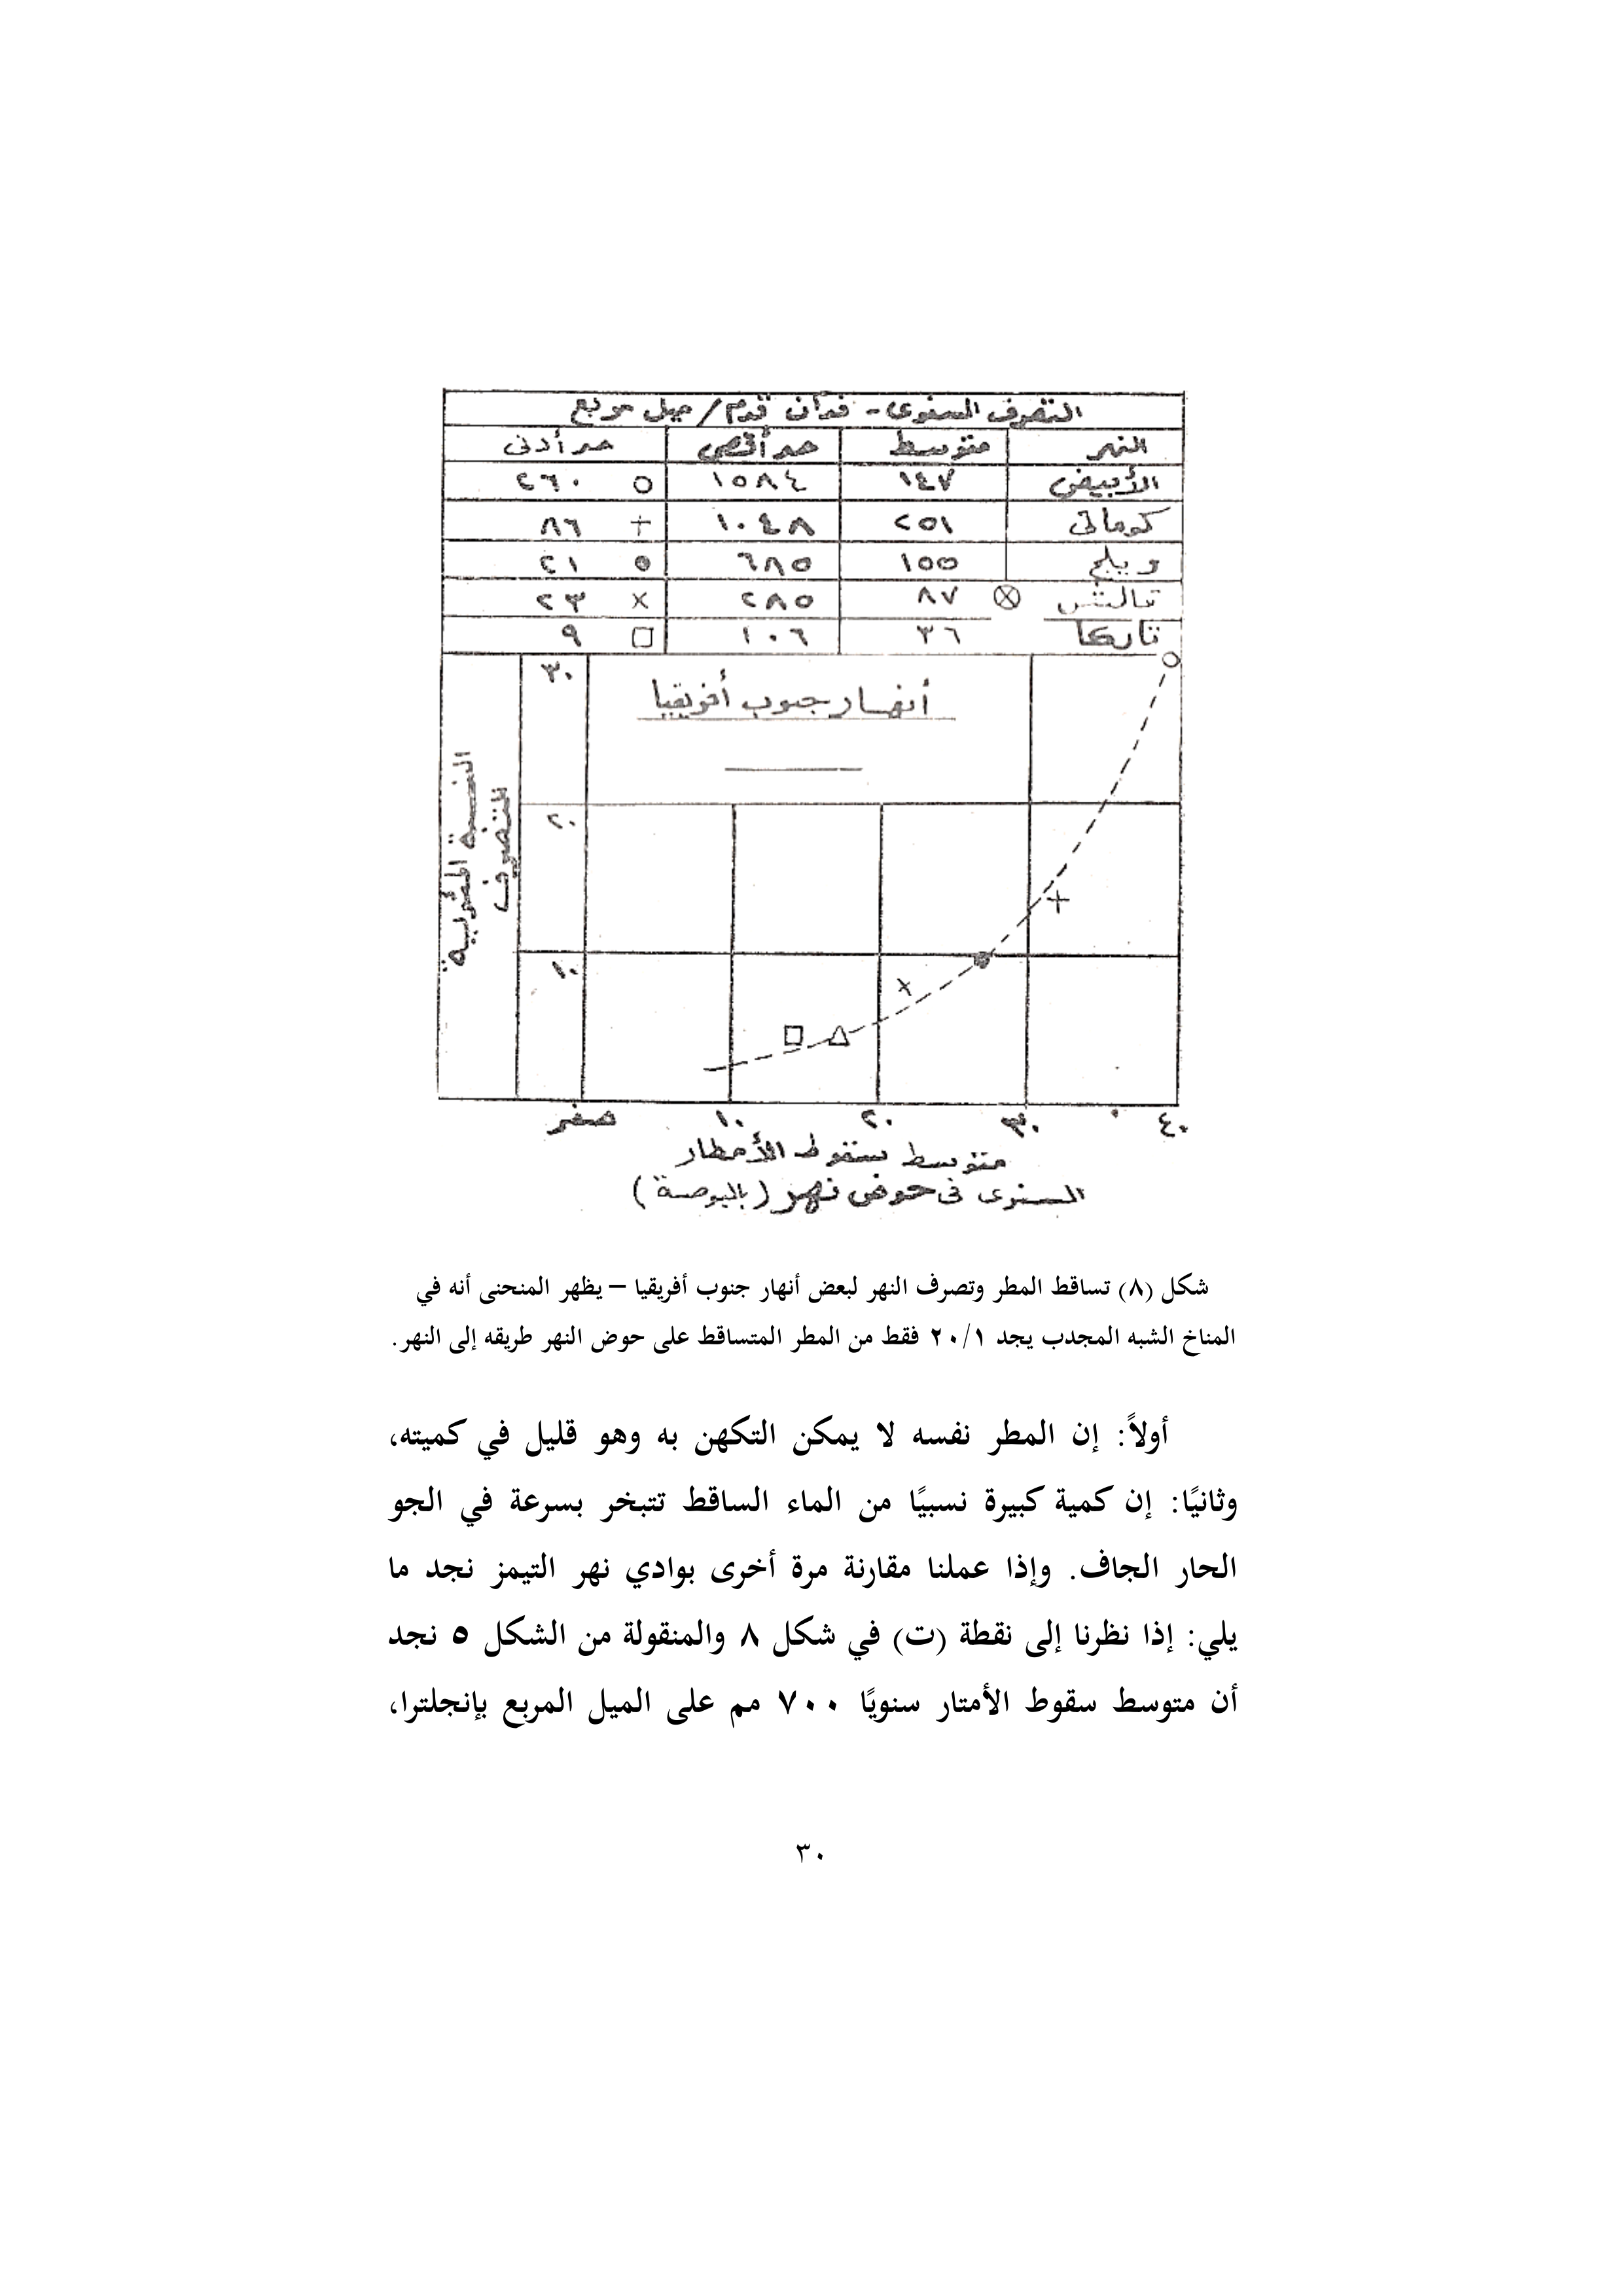 التصرف السنوى - فدان قدم / ميل مربع
النهر متوسط حد أقصى حد أدنى
الأبيض ١٤٧ ١٥٨٤ ○ ٢٦٠
كوماتى ٢٥١ ١٠٤٨ + ٨٦
ويلج ١٥٥ ٦٨٥ ● ٢١
⊗ ٨٧ ٢٨٥ × ٢٣
تاركا ٣٦ ١٠٦ □ ٩
أنهار جنوب أفريقيا
النسبة المئوية
للتصريف
٣٠
٢٠
١٠
صفر ١٠ ٢٠ ٣٠ ٤٠
متوسط سقوط الأمطار
السنوى فى حوض نهر (بالبوصة)
شكل (٨) تساقط المطر وتصرف النهر لبعض أنهار جنوب أفريقيا – يظهر المنحنى أنه في
المناخ الشبه المجدب يجد ٢٠/١ فقط من المطر المتساقط على حوض النهر طريقه إلى النهر.
أولاً: إن المطر نفسه لا يمكن التكهن به وهو قليل في كميته،
وثانيًا: إن كمية كبيرة نسبيًا من الماء الساقط تتبخر بسرعة في الجو
الحار الجاف. وإذا عملنا مقارنة مرة أخرى بوادي نهر التيمز نجد ما
يلي: إذا نظرنا إلى نقطة (ت) في شكل ٨ والمنقولة من الشكل ٥ نجد
أن متوسط سقوط الأمتار سنويًا ٧٠٠ مم على الميل المربع بإنجلترا،
٣٠